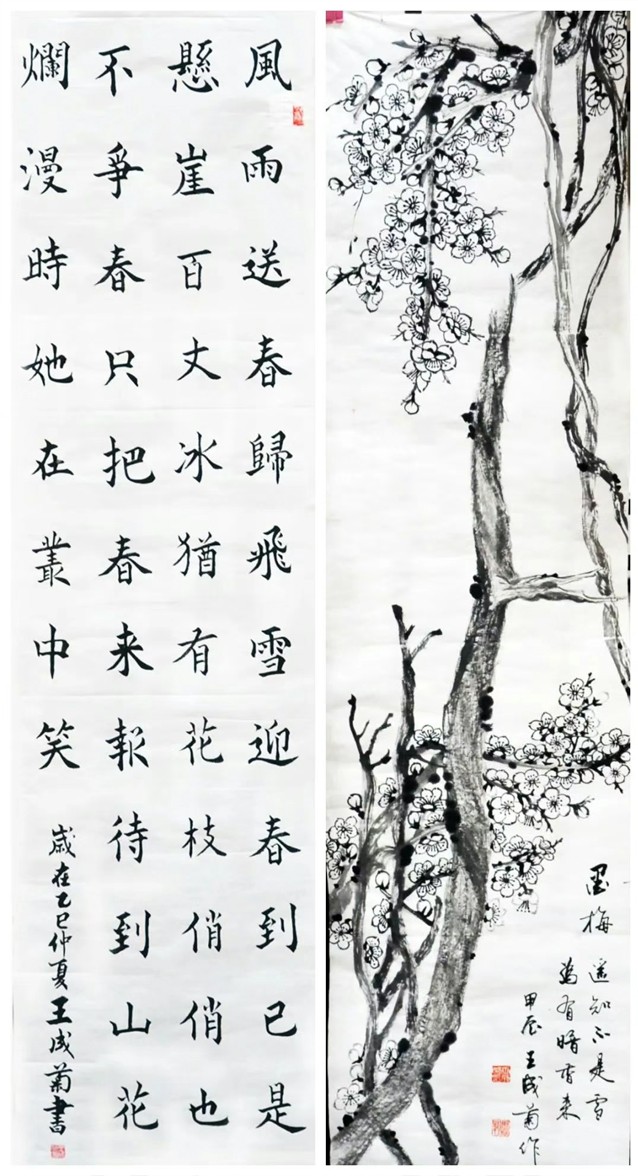 風雨送春歸飛雪迎春到已是
懸崖百丈冰猶有花枝俏俏也
不爭春只把春来報待到山花
爛漫時她在叢中笑
歲在乙巳仲夏王成菊書
墨梅
遥知不是雪
為有暗香来
甲辰王成菊作